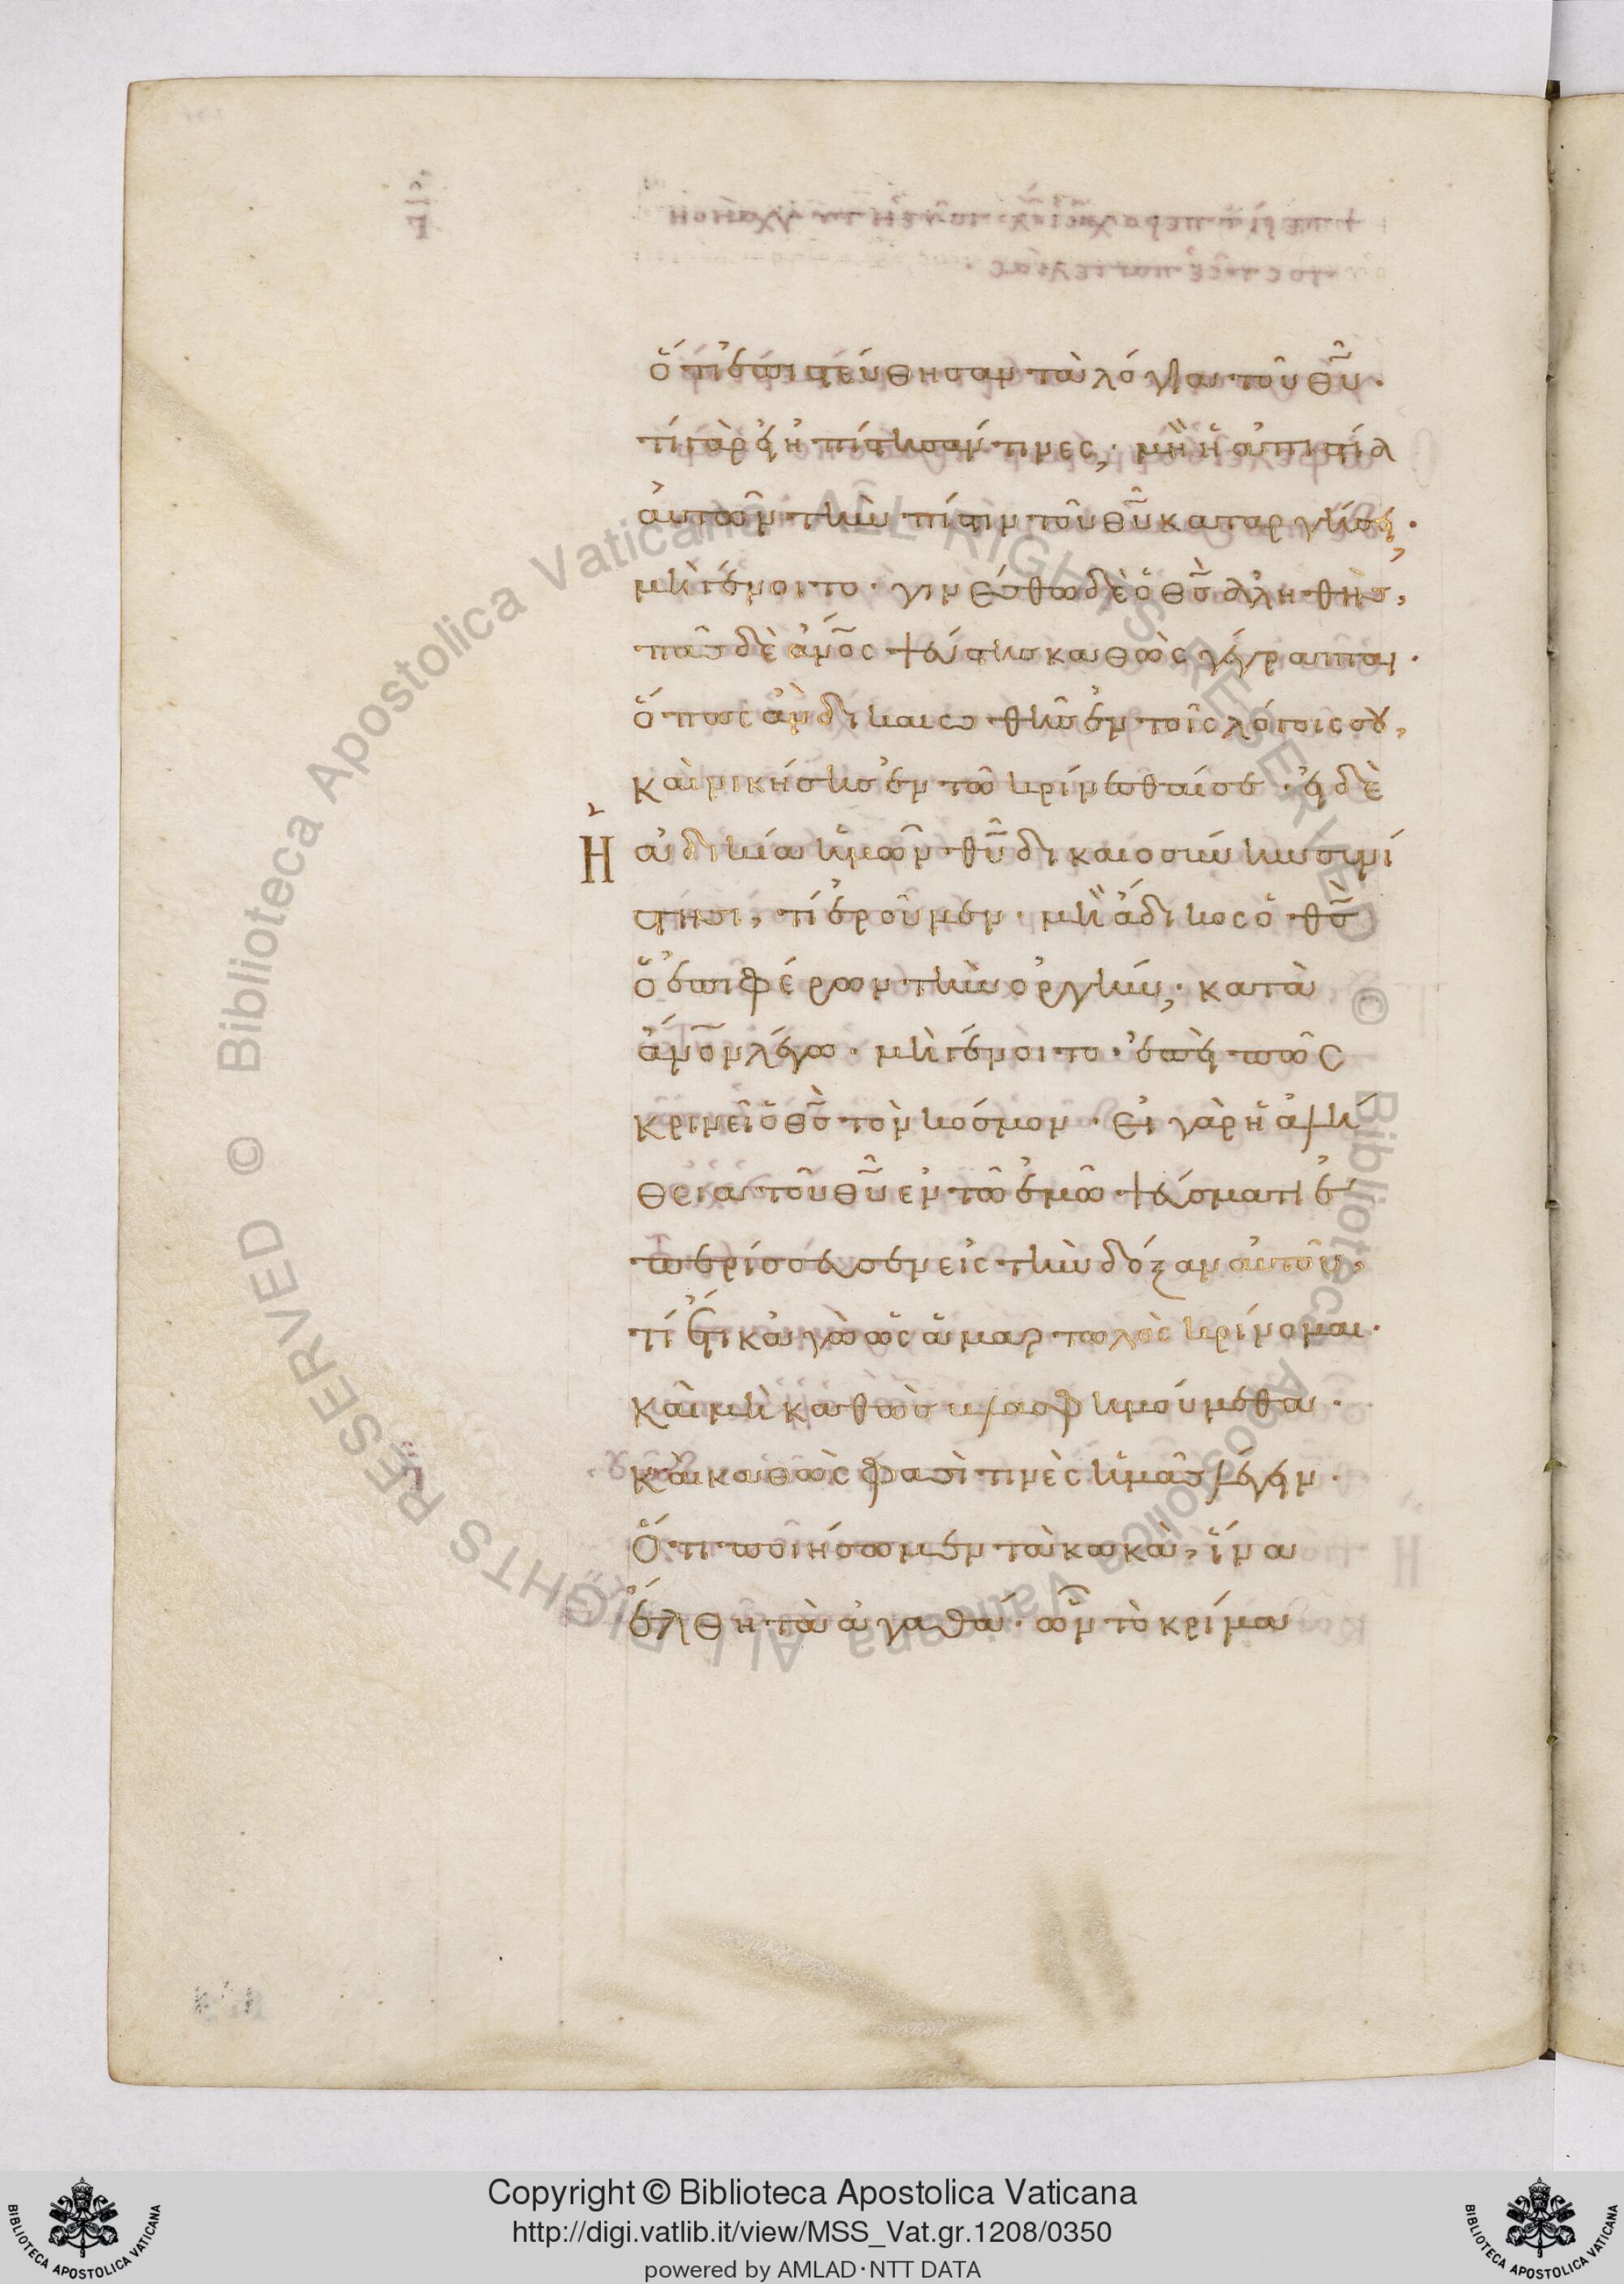 ὅτι ἐπιστεύθησαν τὰ λόγια τοῦ θῦ·
τί γὰρ εἰ ἠπίστησάν τινες; μὴ ἡ ἀπιστία
αὐτῶν τὴν πίστιν τοῦ θῦ καταργήσει;
μὴ γένοιτο· γινέσθω δὲ ὁ θς ἀληθὴς,
πᾶς δὲ ἄνος ψεύστης καθὼς γέγραπται·
ὅπως ἂν δικαιωθῆς ἐν τοῖς λόγοις σου,
καὶ νικήσης ἐν τῶ κρίνεσθαί σε· εἰ δὲ
Ἡ ἀδικία ἡμῶν θῦ δικαιοσύνην συνί
στησι, τί ἐροῦμεν· μὴ ἄδικος ὁ θς
ὁ ἐπιφέρων τὴν ὀργήν; κατὰ
ἄνον λέγω· μὴ γένοιτο· ἐπεὶ πῶς
κρινεῖ ὁ θς τὸν κόσμον· εἰ γὰρ ἡ ἀλή
θεια τοῦ θῦ ἐν τῶ ἐμῶ ψεύσματι ἐ
περίσσευσεν εἰς τὴν δόξαν αὐτοῦ,
τί ἔτι κἀγὼ ὡς ἁμαρτωλὸς κρίνομαι·
καὶ μὴ καθὼς βλασφημούμεθα·
καὶ καθὼς φασί τινὲς ἡμᾶς λέγειν·
Ὅτι ποιήσωμεν τὰ κακὰ, ἵνα
ἔλθη τὰ ἀγαθά· ὧν τὸ κρίμα
Biblioteca Apostolica Vaticana ALL RIGHTS RESERVED © Biblioteca Apostolica Vaticana ALL RIGHTS RESERVED ©
Copyright © Biblioteca Apostolica Vaticana
http://digi.vatlib.it/view/MSS_Vat.gr.1208/0350
powered by AMLAD·NTT DATA
BIBLIOTECA APOSTOLICA VATICANA
BIBLIOTECA APOSTOLICA VATICANA